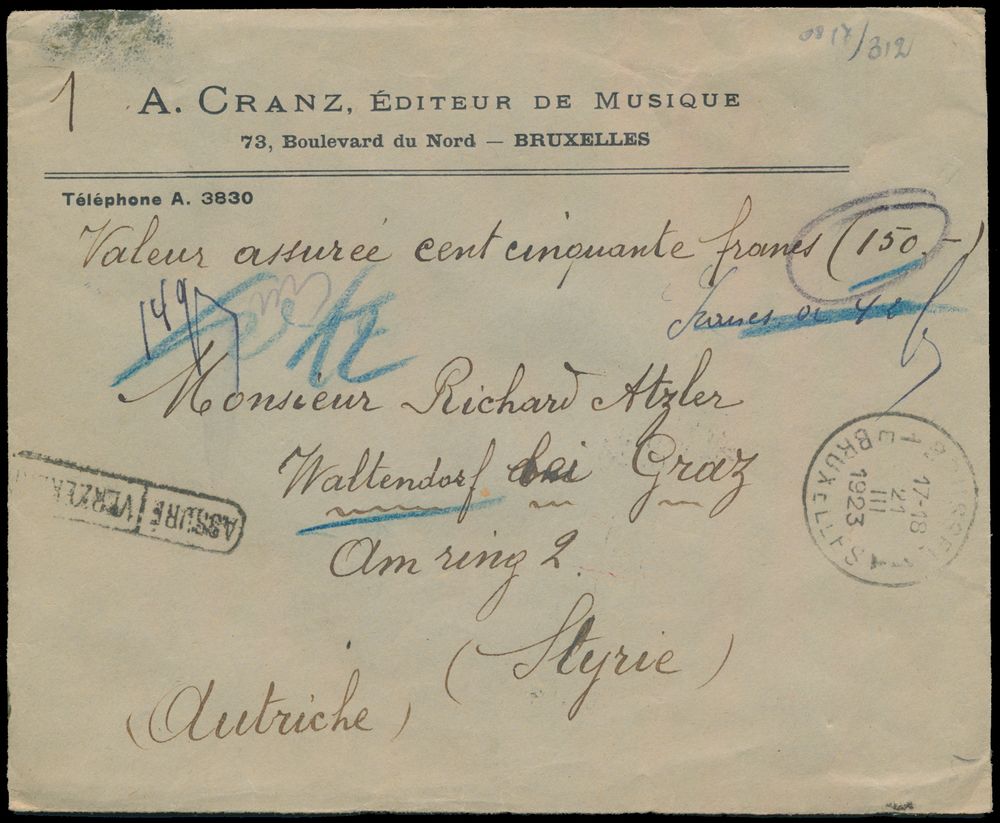 0817/312
1
A. CRANZ, ÉDITEUR DE MUSIQUE
73, Boulevard du Nord — BRUXELLES
Téléphone A. 3830
Valeur assurée cent cinquante francs (150.—)
149
francs or 42
Monsieur Richard Atzler
Waltendorf bei Graz
Am ring 2.
(Styrie)
(Autriche)
ASSURÉ
BRUXELLES
17-18
21
III
1923